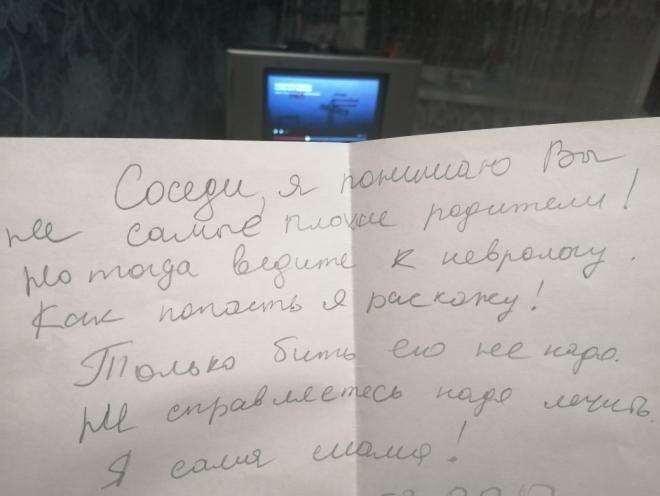 Соседи, я понимаю Вы
не самые плохие родители!
но тогда ведите к неврологу.
Как попасть я раскажу!
Только бить его не надо.
не справляетесь надо лечить.
Я сама мама!